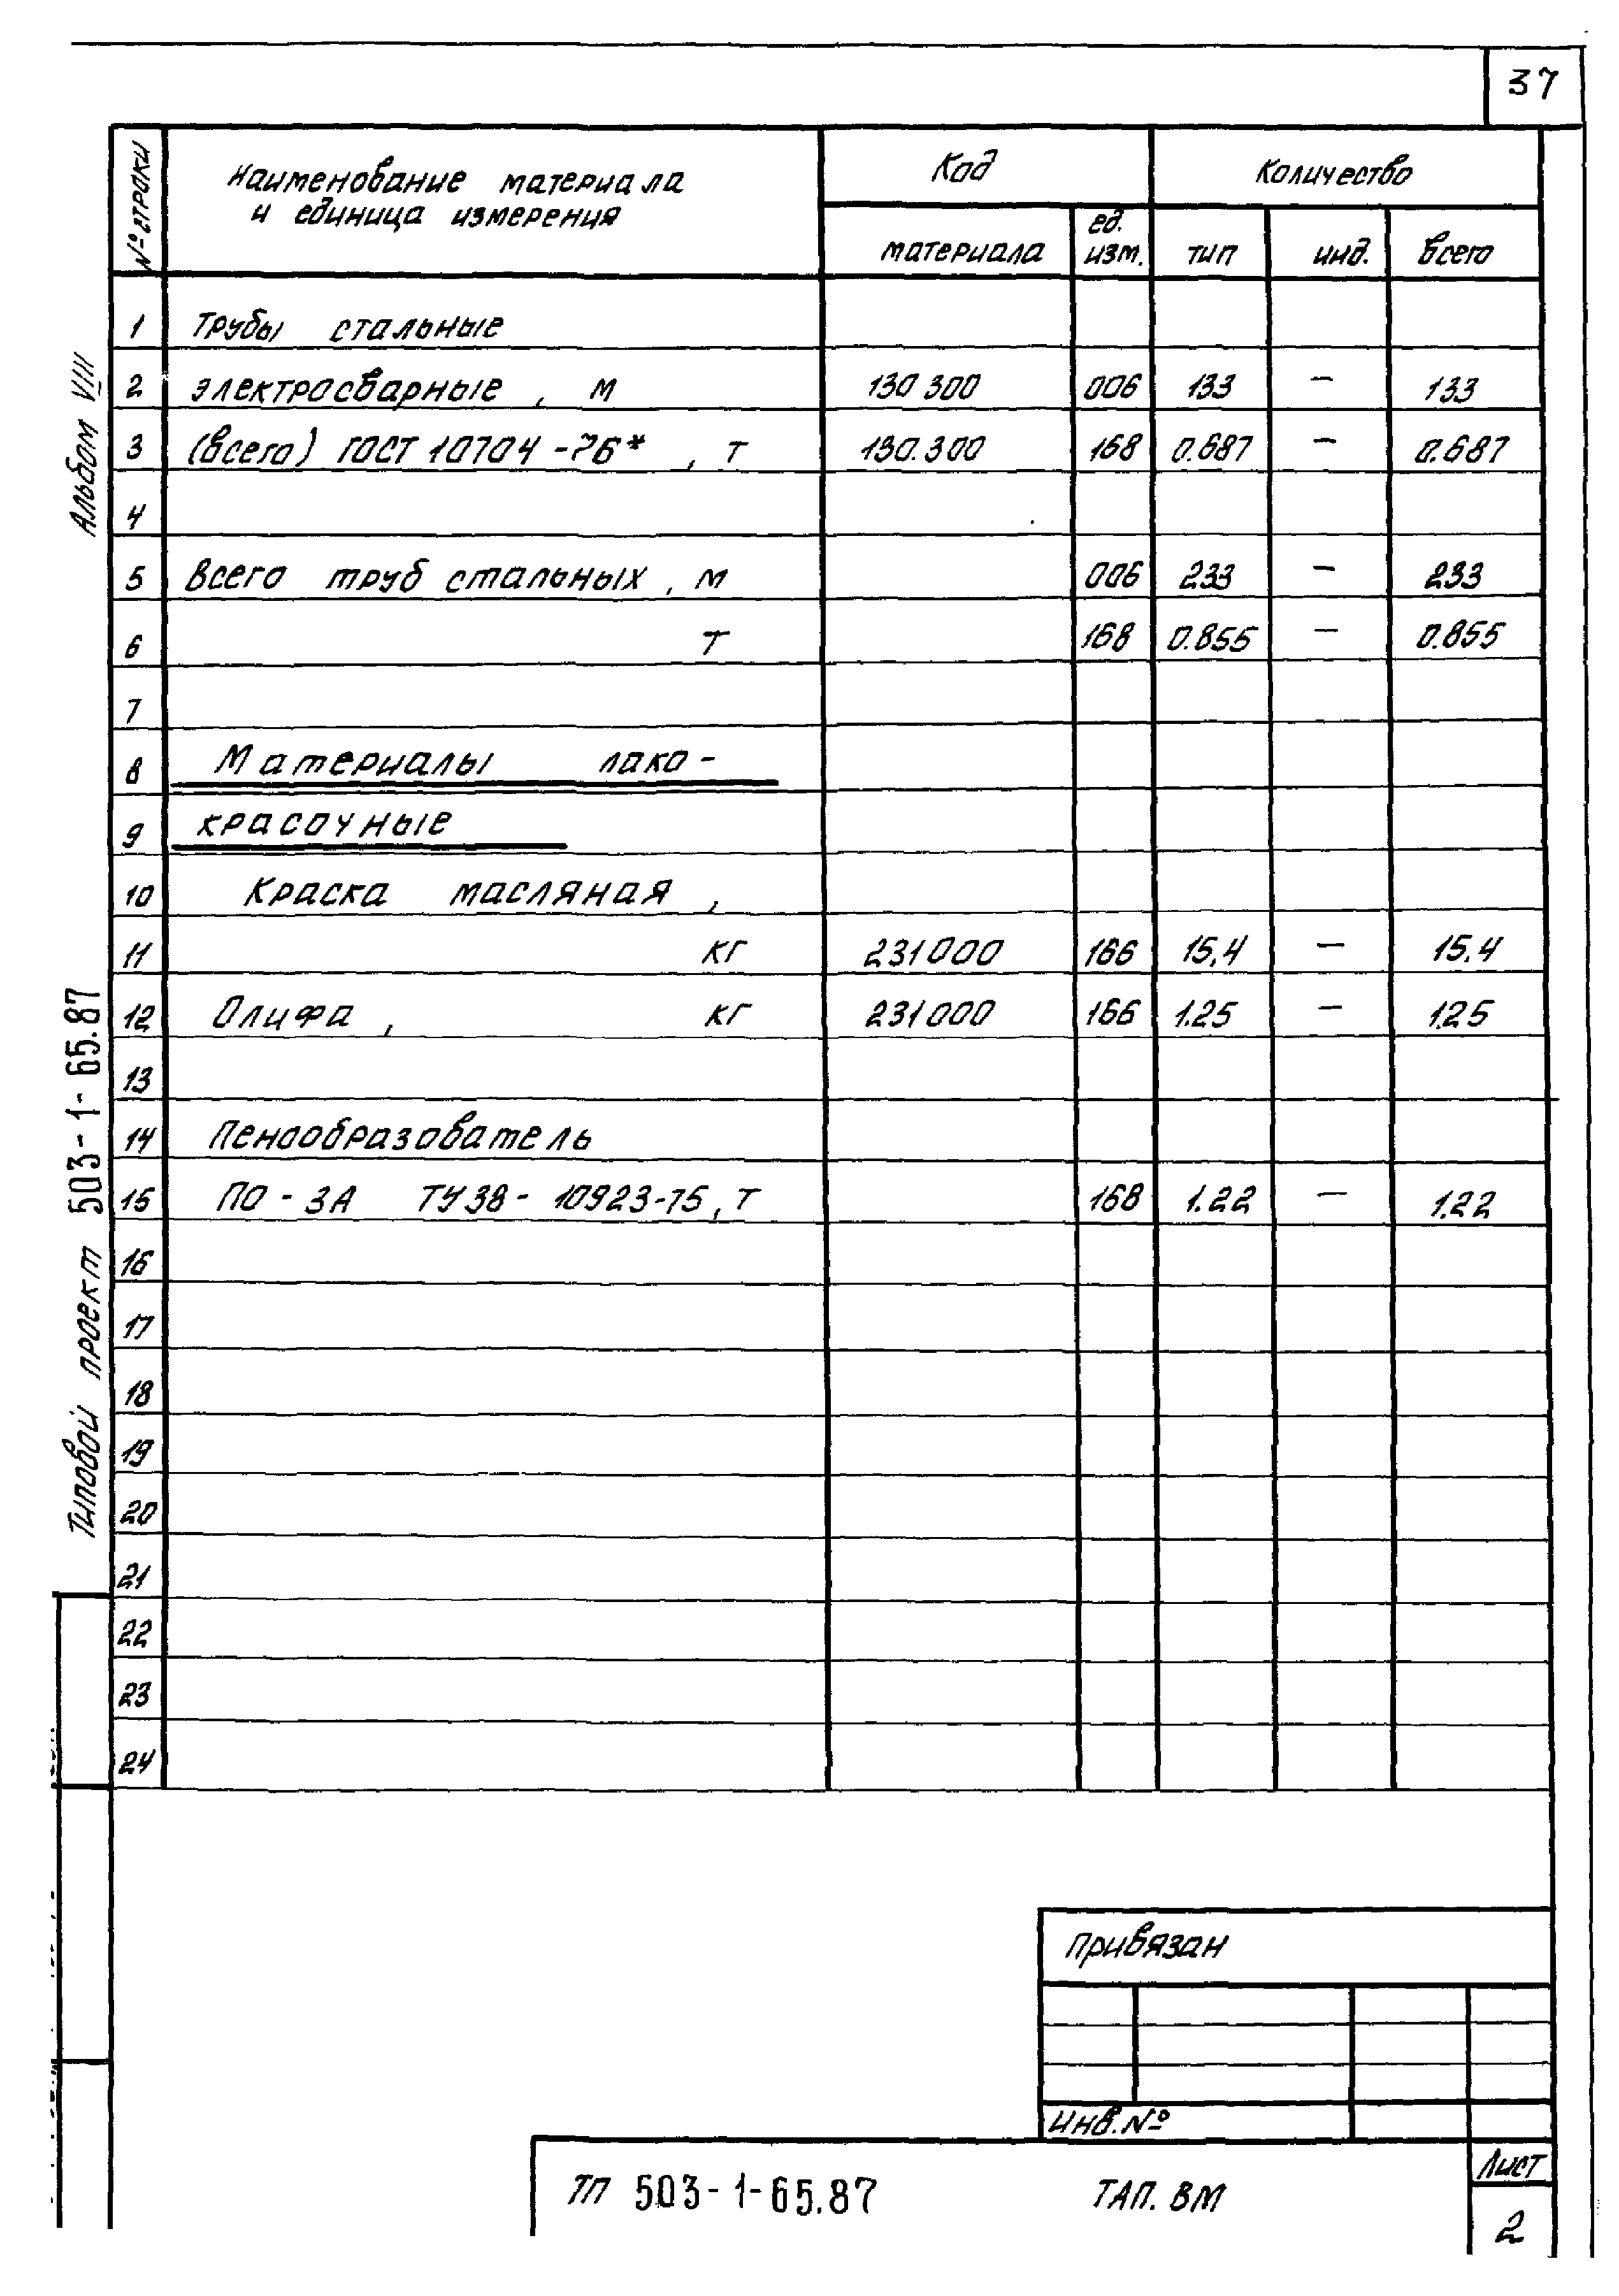 37
№ строки
Наименование материала
и единица измерения
Код
Количество
материала
ед.
изм.
тип
инд.
всего
1 Трубы стальные
2 электросварные, м 130 300 006 133 — 133
3 (всего) ГОСТ 10704-76*, т 130.300 168 0.687 — 0.687
4
5 Всего труб стальных, м 006 233 — 233
6 т 168 0.855 — 0.855
7
8 Материалы лако-
9 красочные
10 Краска масляная,
11 кг 231000 166 15,4 — 15,4
12 Олифа, кг 231000 166 1.25 — 1.25
13
14 Пенообразователь
15 ПО-3А ТУ38-10923-75, т 168 1.22 — 1.22
16
17
18
19
20
21
22
23
24
Альбом VIII
Типовой проект 503-1-65.87
Привязан
Инв.№
ТП 503-1-65.87 ТАП. ВМ
Лист
2